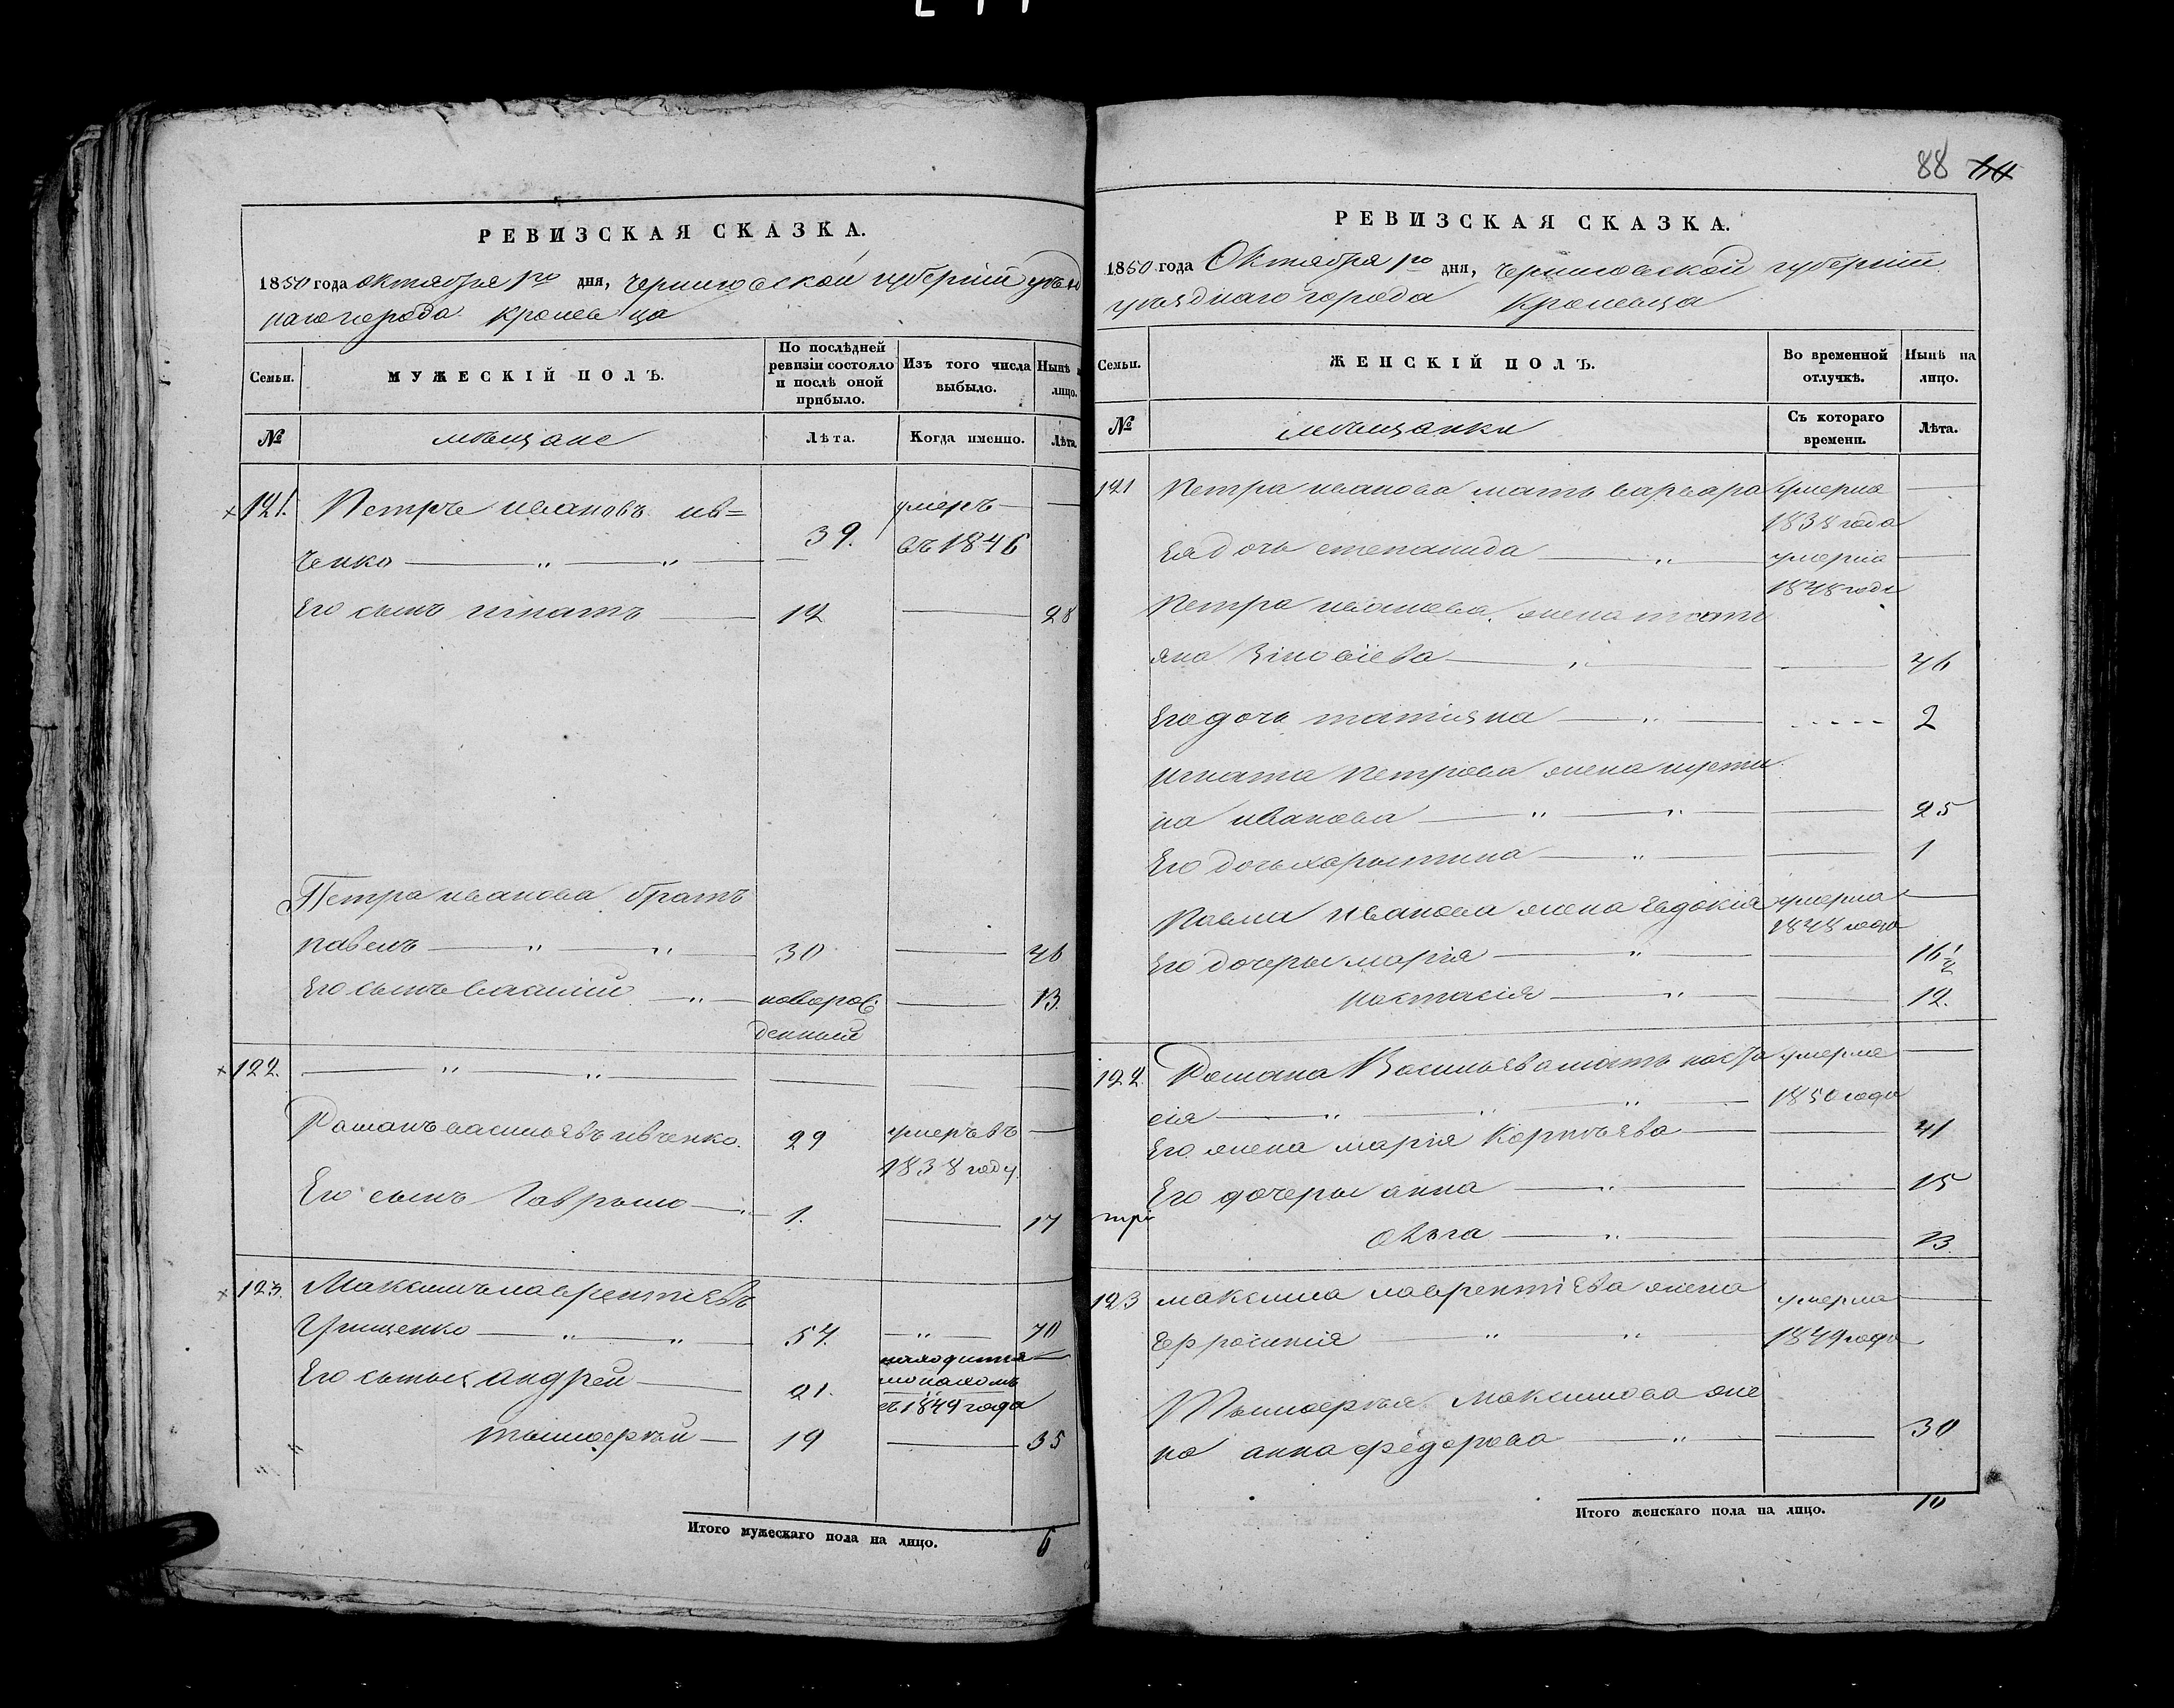 88
РЕВИЗСКАЯ СКАЗКА.
1850 года октября 1го дня, Черниговской губерніи уѣзд
наго города Кролевца
Семьи.
МУЖЕСКІЙ ПОЛЪ.
По послѣдней ревизіи состояло и послѣ оной прибыло.
Изъ того числа выбыло.
Нынѣ на лицо.
№
мѣщане
Лѣта.
Когда именно.
Лѣта.
121. Петръ ивановъ ив= умеръ —
ченко — „ — „ — 39. въ 1846
Его сынъ игнатъ — 12 — 28
Петра иванова братъ
павелъ — „ — „ — 30 — 46
Его сынъ василій — „ — новорож — 13.
денный
122. — „ — „ —
Романъ васильевъ ивченко. 29 умеръ въ —
1838 году
Его сынъ Гаврыло — „ — 1. — 17
123. Максимъ лаврентіевъ
Грищенко — „ — „ — 54. — „ — 70
Его сыны андрей — 21. находится —
монахомъ
съ 1849 года
тымофѣй — 19 — 35
Итого мужескаго пола на лицо. 6
РЕВИЗСКАЯ СКАЗКА.
1850 года Октября 1го дня, Черниговской губерніи
уѣзднаго города Кролевца
Семьи.
ЖЕНСКІЙ ПОЛЪ.
Во временной отлучкѣ.
Нынѣ на лицо.
№
мѣщанки
Съ котораго времени.
Лѣта.
121 Петра иванова мать варвара умерла —
1838 года
Ея дочь степанида — „ — умерла —
1848 года
Петра иванова жена тать
яна Зіновіева — „ — 46
Его дочь татияна — „ — 2
Игната Петрова жена
на иванова — „ — „ — 25
Его дочь харытина — „ — 1
Павла Иванова жена Евдокія умерла —
1848 года
Его дочеры марія — „ — 16 1/2
настасія — „ — 12.
122. Романа Васильева мать наста умерла —
сія — „ — „ — „ — 1850 года
Его жена марія Корнѣева — 41
Его дочеры анна — „ — 15
Ольга — „ — 13.
123 максима лаврентіева жена умерла —
Ефросинія — „ — „ 1849 года
Тымофѣя Максимова же
на анна федорова — „ — 30
Итого женскаго пола на лицо. 10